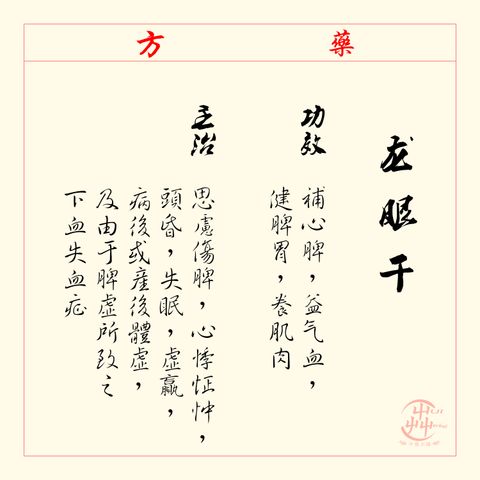 藥方
龙眼干
功效
補心脾，益气血，
健脾胃，養肌肉
主治
思慮傷脾，心悸怔忡，
頭昏，失眠，虛羸，
病後或產後體虛，
及由于脾虛所致之
下血失血症